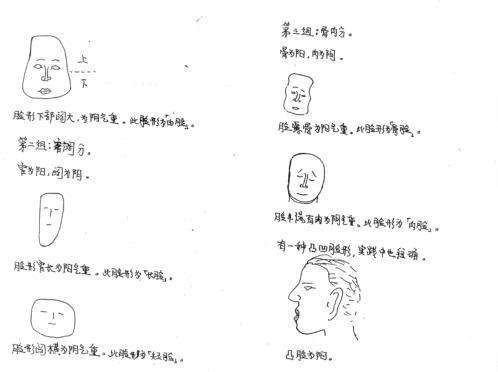 上
下
脸形下部阔大,为阴气重。此脸形为「由脸」。
第二组:窄阔分。
窄为阳,阔为阴。
脸形窄长为阳气重。此脸形为「长脸」。
脸形阔横为阴气重。此脸形为「短脸」。
第三组:骨肉分。
骨为阳,肉为阴。
脸露骨为阳气重。此脸形为「骨脸」。
脸有肉为阴气重。此脸形为「肉脸」。
有一种凸凹脸形,实践中也
凸脸为阳。